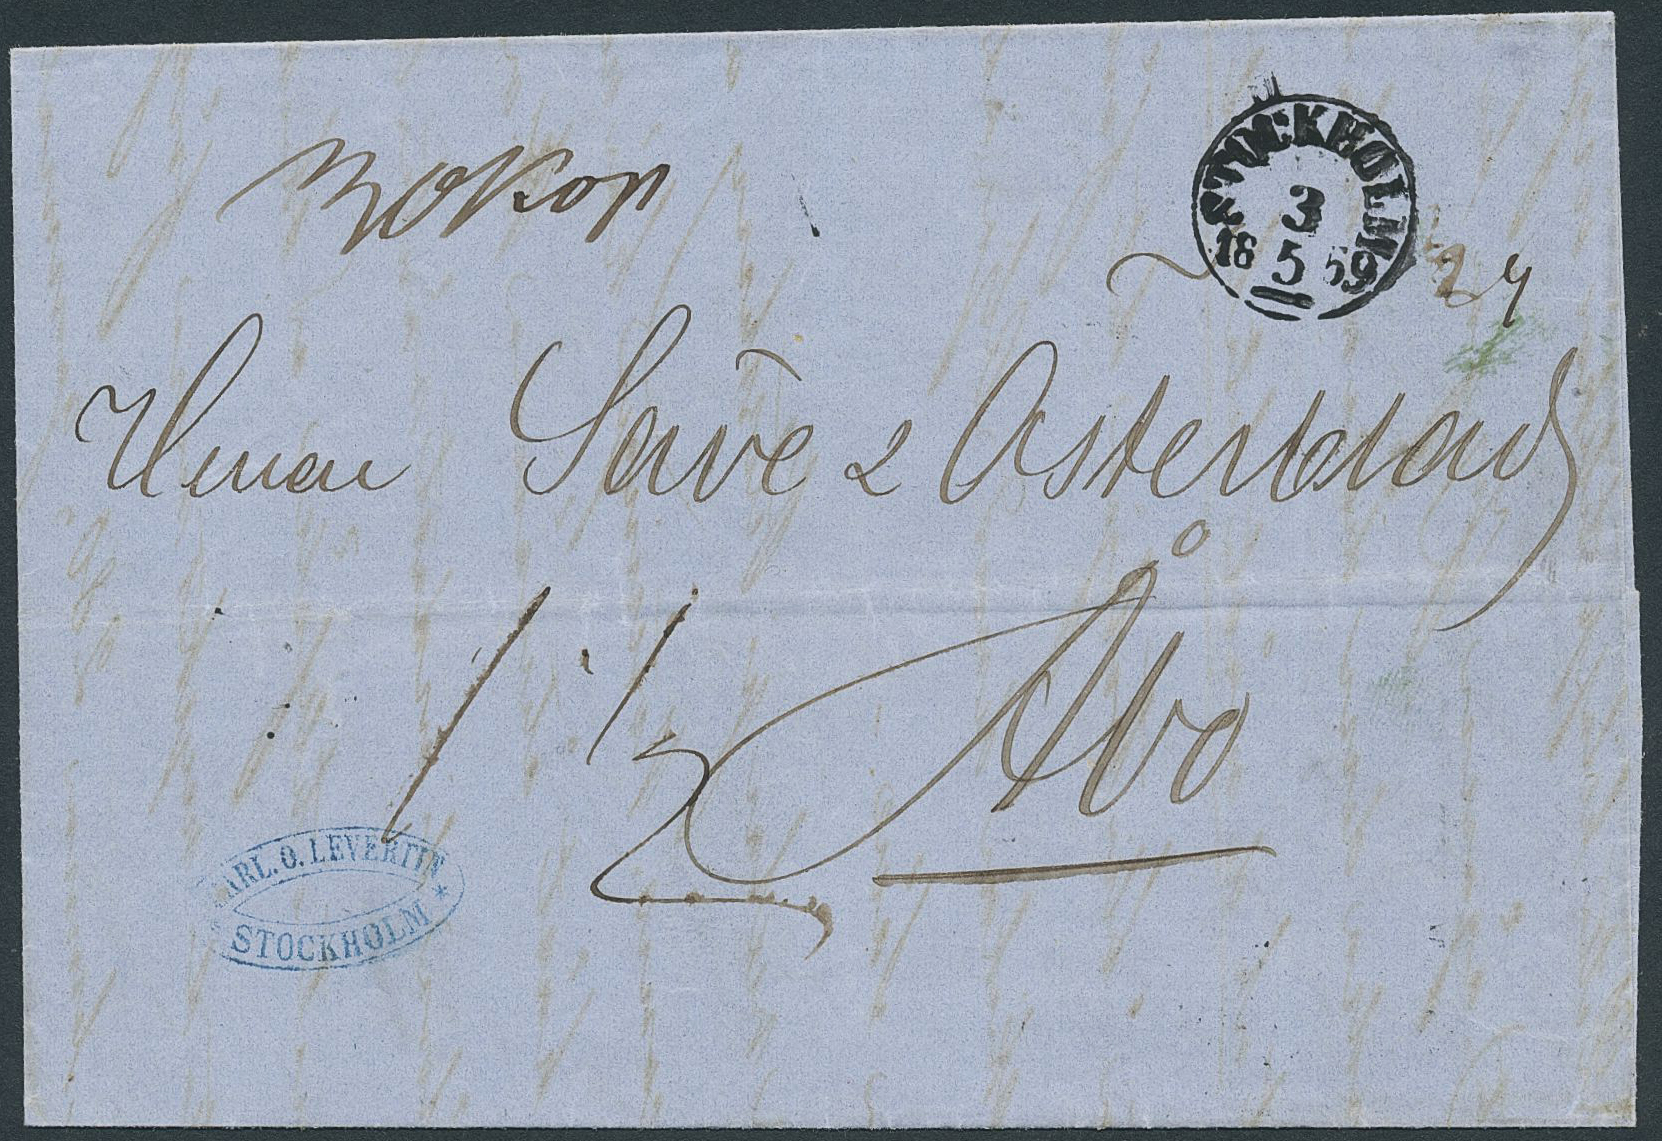 30 коп
STOCKHOLM
3
18 5 59
24
Herrar Savè & Asterblad
Åbo
1 1/2
CARL. O. LEVERTIN
* STOCKHOLM